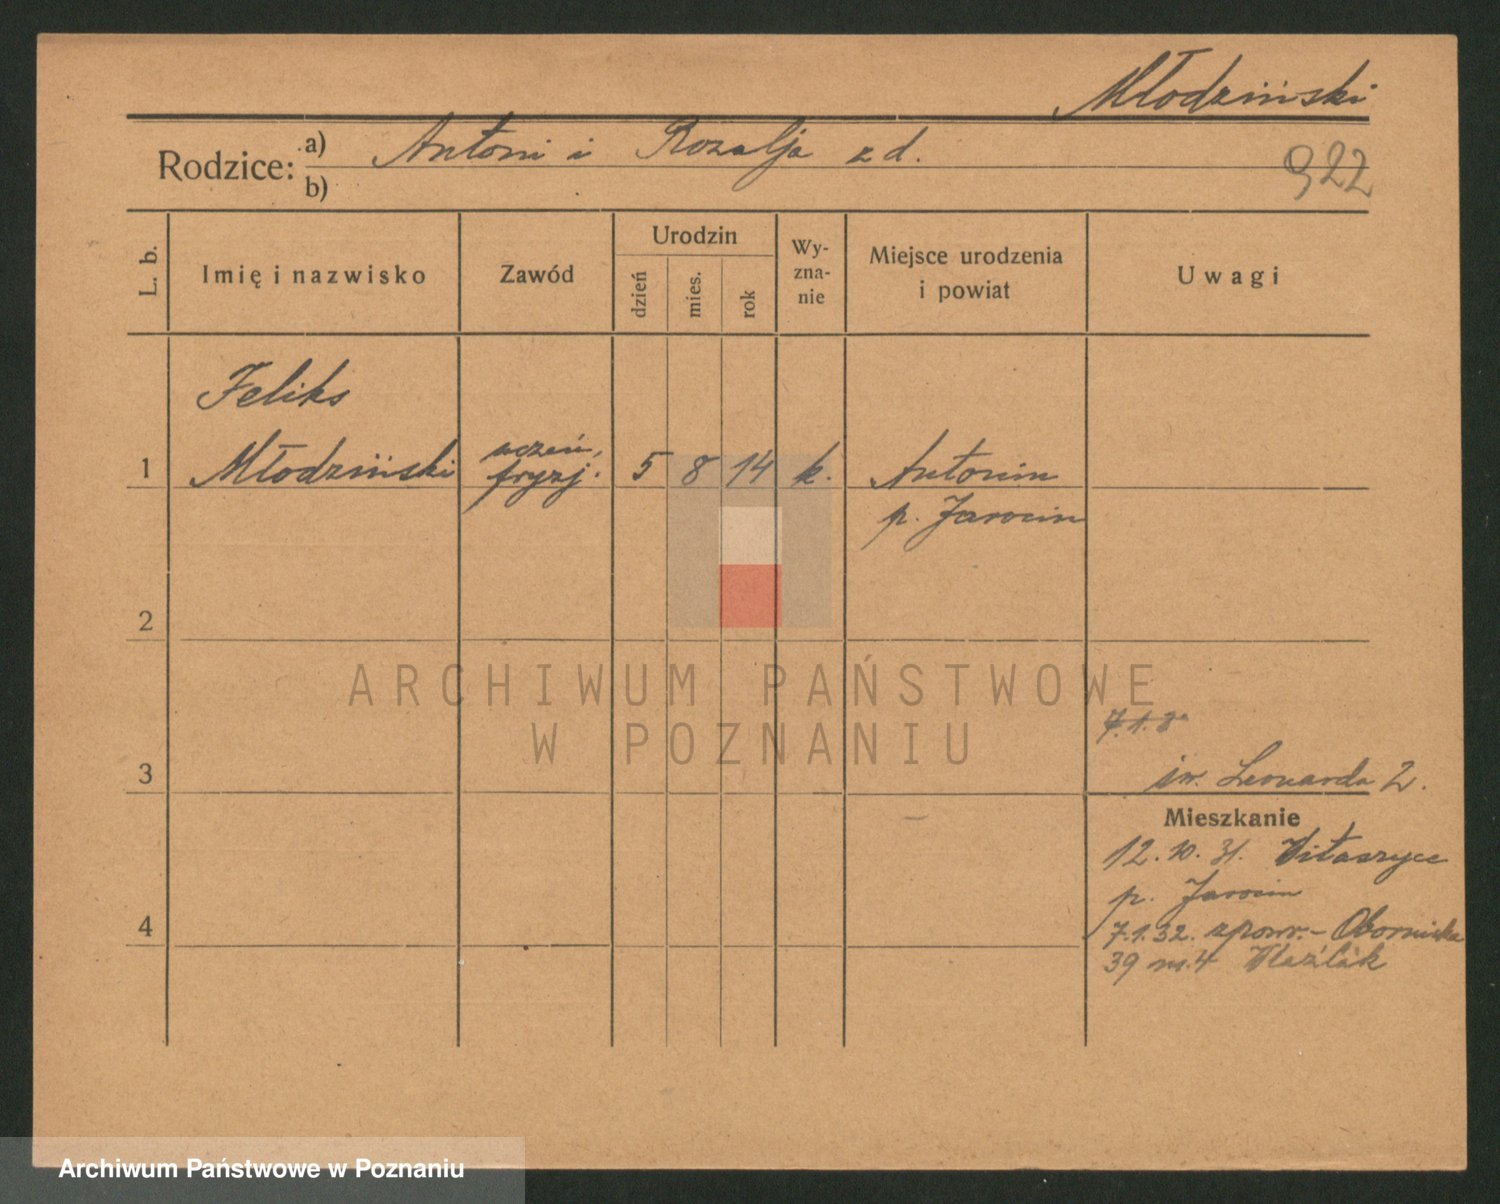 Młodziński
Rodzice: a) Antoni i Rozalja z d.
b)
922
L. b.
Imię i nazwisko
Zawód
Urodzin
dzień
mies.
rok
Wy-
zna-
nie
Miejsce urodzenia
i powiat
Uwagi
Feliks
1 Młodziński uczeń, fryzj. 5 8 14 k. Antonin
p. Jarocin
2
ARCHIWUM PAŃSTWOWE
W POZNANIU
7.1.
3
św. Leonarda 2.
Mieszkanie
12.10.31. Witaszyce
p. Jarocin
4
7.1.32. zpowr.- Obornicka
39 m.4
Archiwum Państwowe w Poznaniu